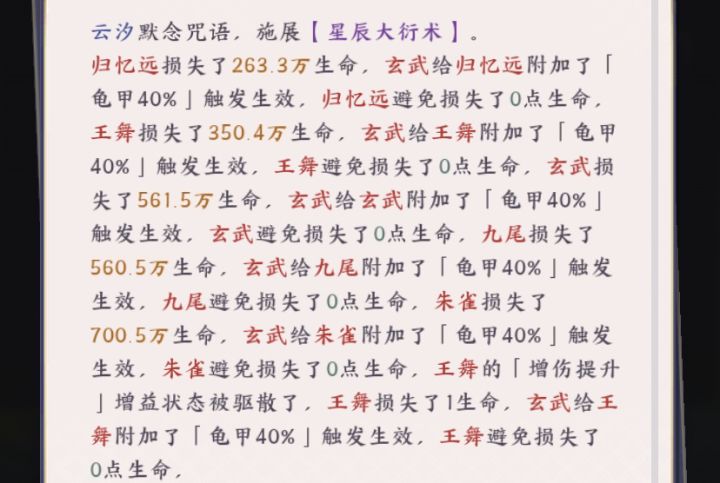 云汐默念咒语，施展【星辰大衍术】。
归忆远损失了263.3万生命，玄武给归忆远附加了「
龟甲40%」触发生效，归忆远避免损失了0点生命，
王舞损失了350.4万生命，玄武给王舞附加了「龟甲
40%」触发生效，王舞避免损失了0点生命，玄武损
失了561.5万生命，玄武给玄武附加了「龟甲40%」
触发生效，玄武避免损失了0点生命，九尾损失了
560.5万生命，玄武给九尾附加了「龟甲40%」触发
生效，九尾避免损失了0点生命，朱雀损失了
700.5万生命，玄武给朱雀附加了「龟甲40%」触发
生效，朱雀避免损失了0点生命，王舞的「增伤提升
」增益状态被驱散了，王舞损失了1生命，玄武给王
舞附加了「龟甲40%」触发生效，王舞避免损失了
0点生命，